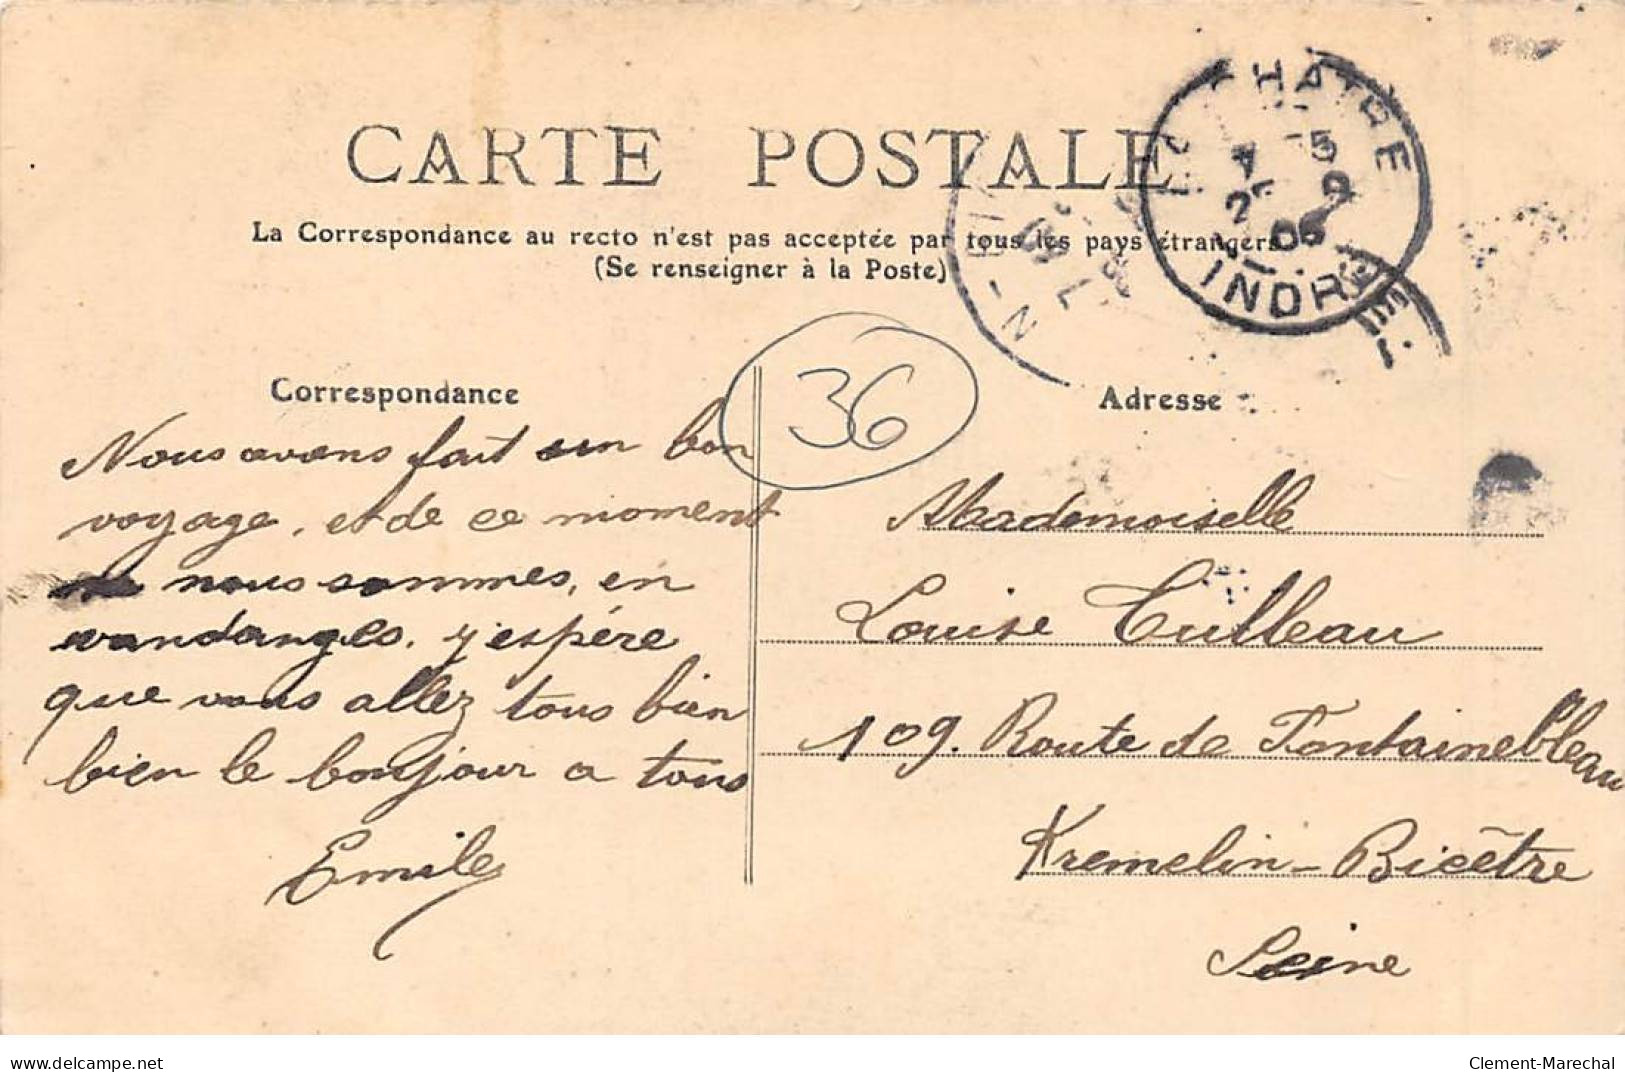 CARTE POSTALE
La Correspondance au recto n'est pas acceptée par tous les pays étrangers
(Se renseigner à la Poste)
LA CHATRE
5
25 9
06
INDRE
36
Correspondance
Nous avons fait un bon
voyage, et de ce moment
nous sommes, en
vandanges. j'espére
que vous allez tous bien
bien le bonjour a tous
Emile
Adresse
Mademoiselle
Louise Tulleau
109. Route de Fontainebleau
Kremelin-Bicêtre
Seine
www.delcampe.net
Clement-Marechal